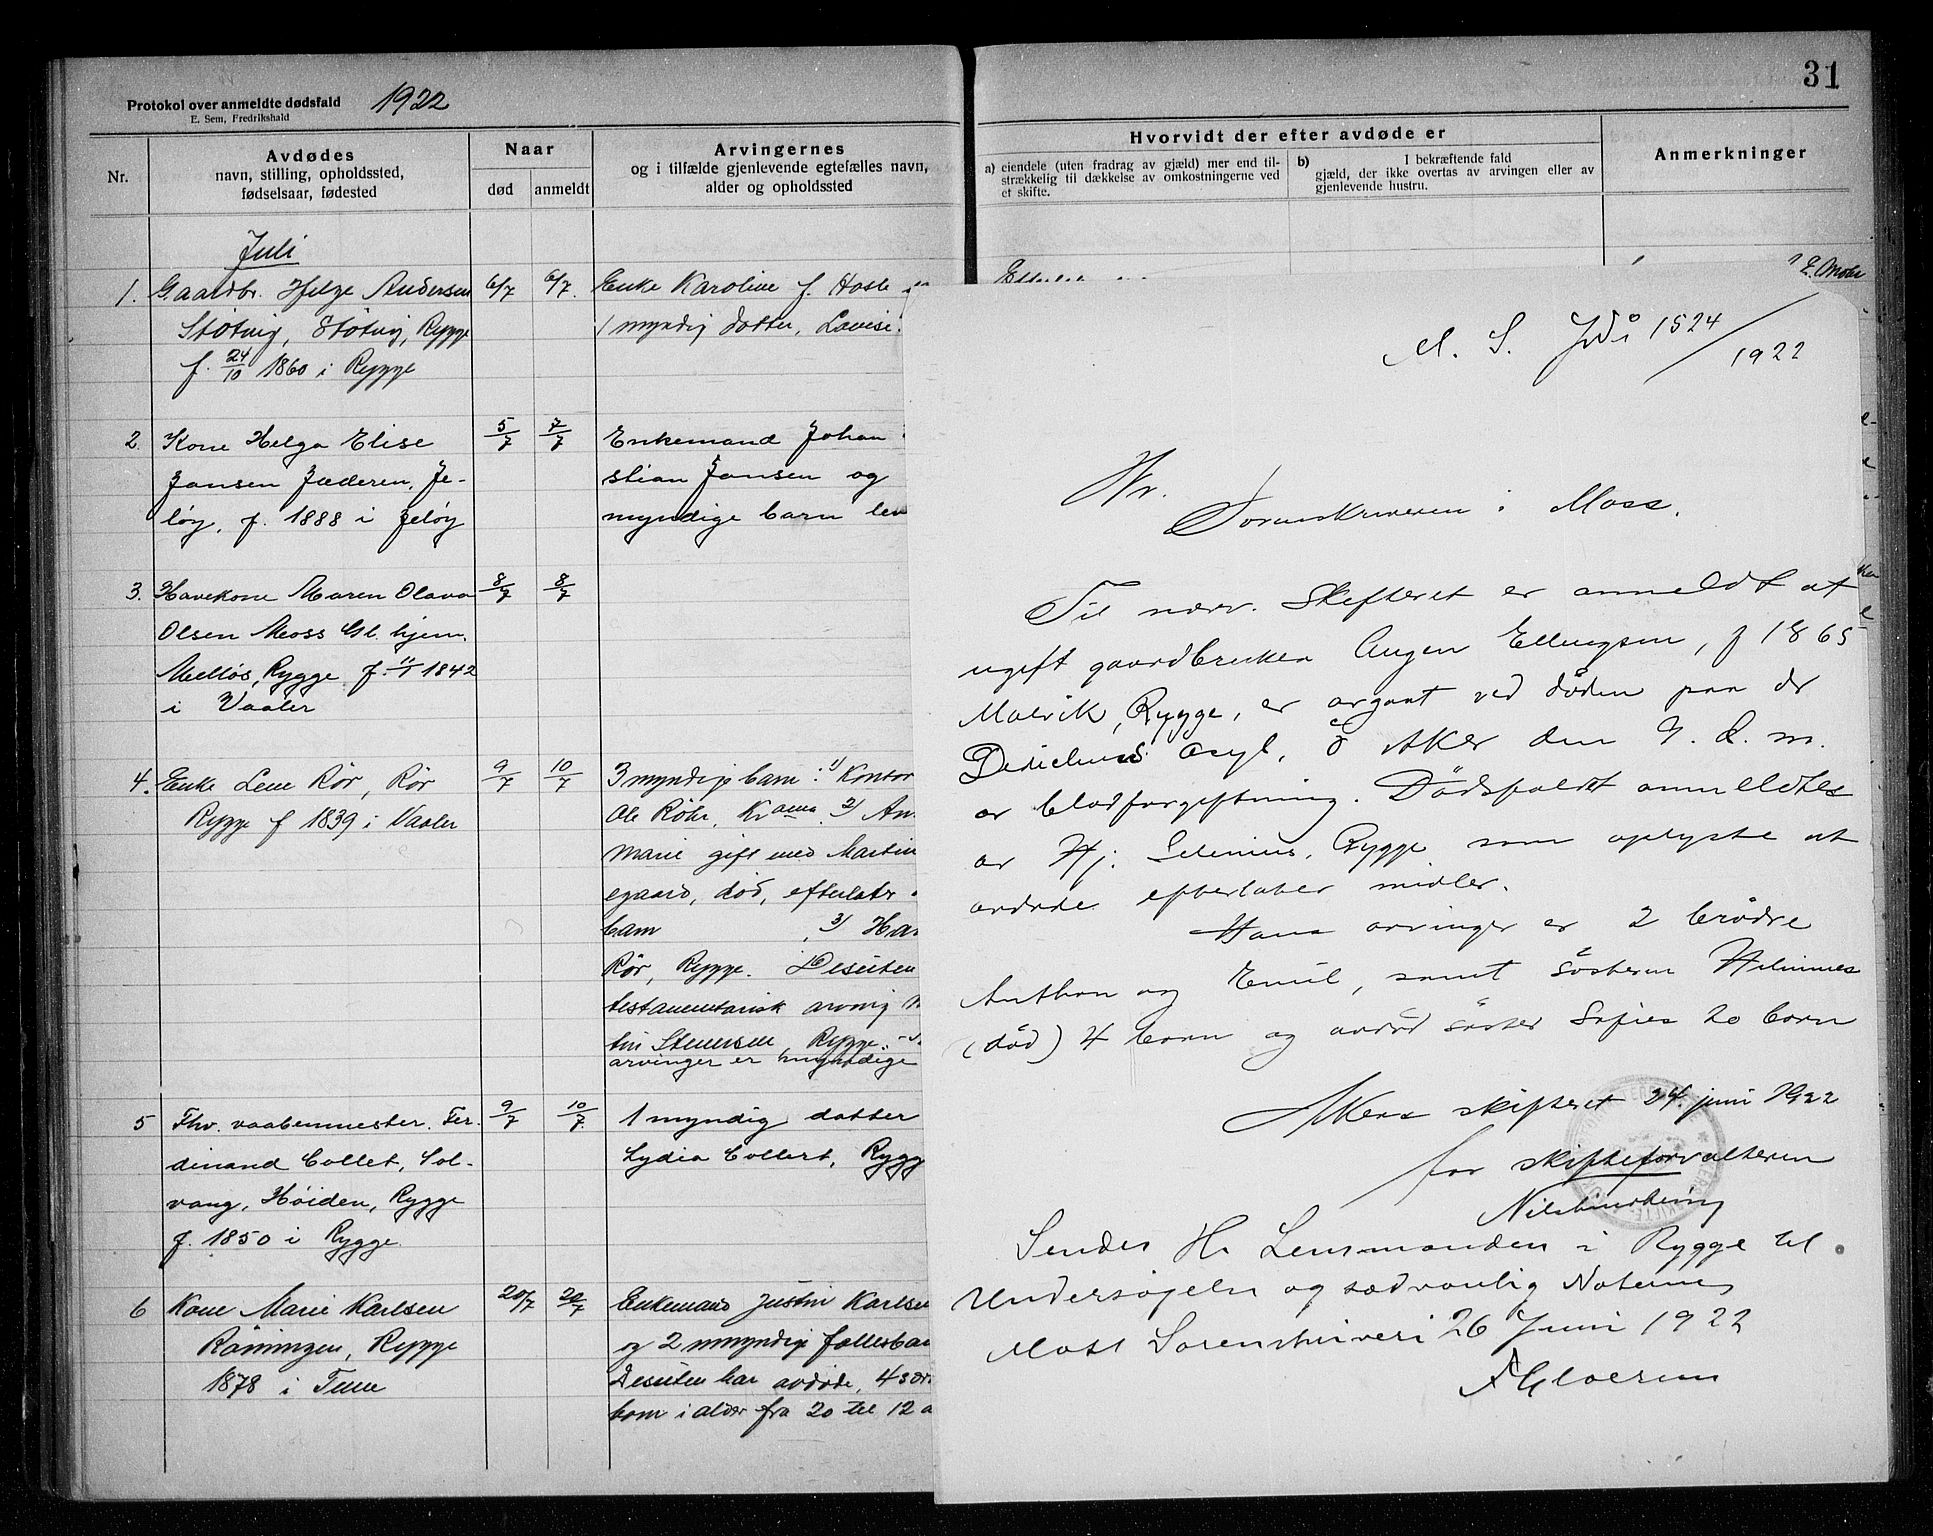 Protokol over anmeldte dødsfald 1922
E. Sem, Fredrikshald
Nr.
Avdødes
navn, stilling, opholdssted,
fødselsaar, fødested
Naar
død
anmeldt
Arvingernes
og i tilfælde gjenlevende egtefælles navn,
alder og opholdssted
Juli
1. Gaardbr. Helge Andersen 6/7 6/7. Enke Karoline f.
Støtvig, Støtvig, Rygge 1 myndig datter, Lovise.
f. 24/10 1860 i Rygge
2. Kone Helga Elise 5/7 7/7 Enkemand Johan
Jansen Jæderen, Je- stian Jansen og
løy, f. 1888 i Jeløy myndige barn
3. Havekone Maren Olava 8/7 8/7
Olsen Moss Gl. hjem,
Melløs, Rygge f. 11/1 1842
i Vaaler
4. Enke Lene Rør, Rør 9/7 10/7 3 myndige barn: 1) Kontor
Rygge f 1839 i Vaaler Ole Röhr, Kr.ania 2) An
Marie gift med Martin
egaard, død, efterlater
barn , 3) Han
Rør, Rygge. Desuten
testamentarisk arving
tin Stenersen, Rygge.
arvinger er myndige
5 Fhv. vaabenmester. Fer- 9/7 10/7. 1 myndig datter
dinand Collet, Sol- Lydia Collett, Rygg
vang, Höiden, Rygge
f. 1850 i Rygge
6 Kone Marie Karlsen 20/7 20/7 Enkemand Justin Karlsen
Röningen, Rygge og 2 umyndige fællesba
1878 i Tune Desuten har avdøde, 4 sær
barn i alder fra 20 til 12 a
31
Hvorvidt der efter avdøde er
a) eiendele (uten fradrag av gjæld) mer end til-
strækkelig til dækkelse av omkostningerne ved
et skifte.
b) I bekræftende fald
gjæld, der ikke overtas av arvingen eller av
gjenlevende hustru.
Anmerkninger
M. S. 1524/1922
Hr.
Sorenskriveren i Moss.
Til nærv. Skifteret er anmeldt at
ugift gaardbruker Augen Ellingsen, f 1865
Malvik, Rygge, er avgaat ved døden paa dr
asyl, Ö Aker den 9. d. m.
av blodforgiftning. Dödsfaldet anmeldtes
av Hj. Selenius, Rygge som oplyste at
avdøde efterlater midler.
Hans arvinger er 2 brödre
Anthon og Emil, samt søsteren
(død) 4 barn og avdød söster Sofies 20 barn
Akers skifteret 24. juni 1922
for skifteforvalteren
Sendes Hr. Lensmanden i Rygge til
Undersøgelse og sædvanlig
Moss Sorenskriveri 26 Juni 1922